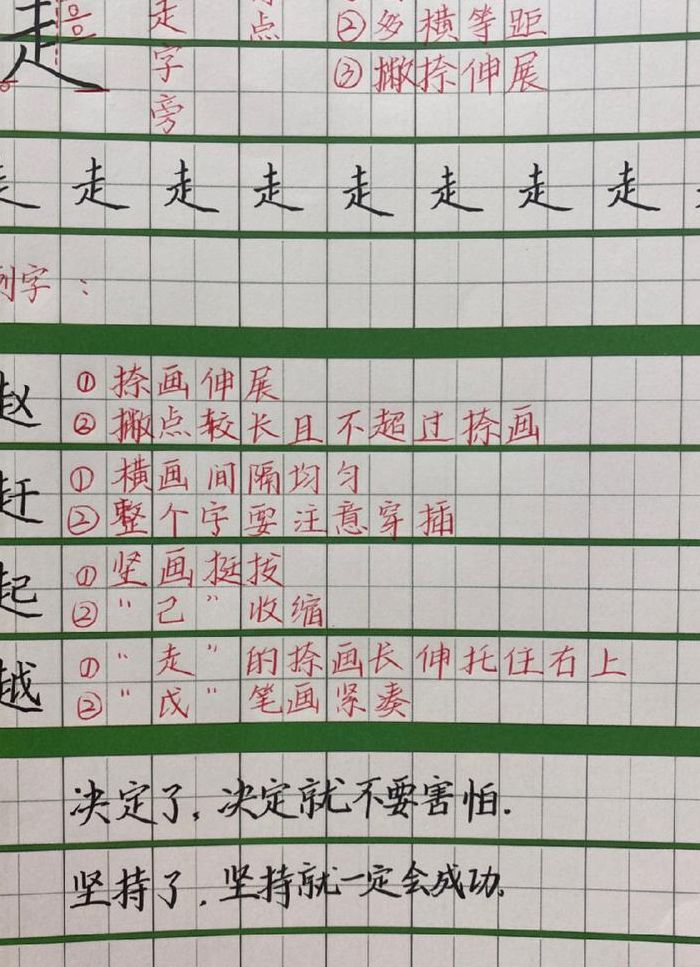 走 走字旁 点 ②多横等距
③撇捺伸展
走 走 走 走 走 走 走 走
例字：
赵 ①捺画伸展
②撇点较长且不超过捺画
赶 ①横画间隔均匀
②整个字要注意穿插
起 ①坚画挺拔
②“己”收缩
越 ①“走”的捺画长伸托住右上
②“戉”笔画紧凑
决定了，决定就不要害怕.
坚持了，坚持就一定会成功.